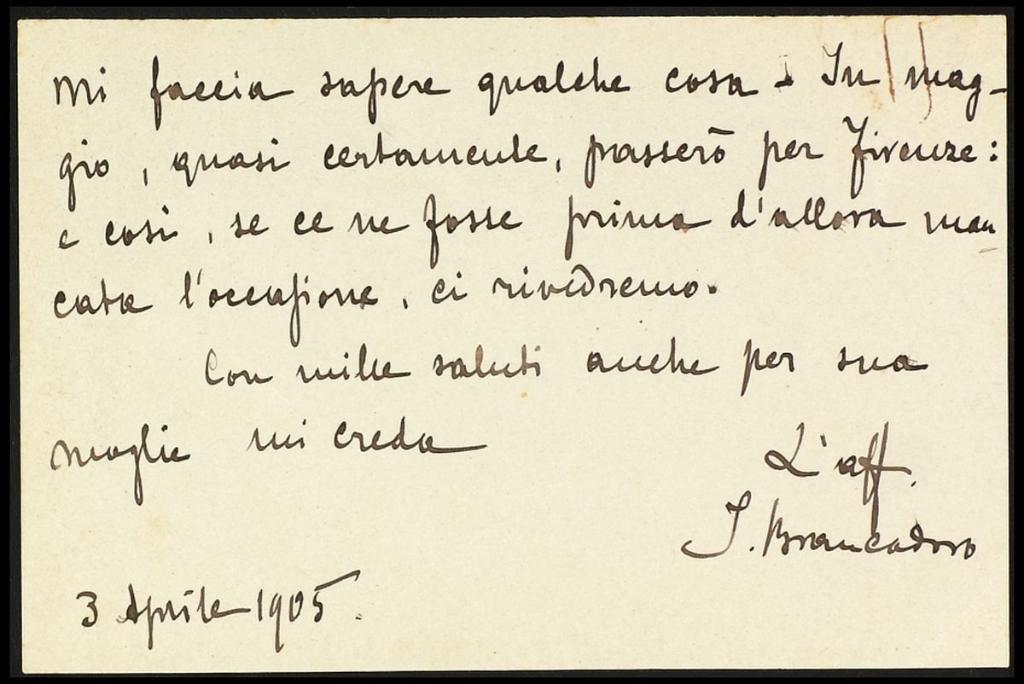 Mi faccia sapere qualche cosa - In mag-
gio, quasi certamente, passerò per Firenze:
e così, se ce ne fosse prima d'allora man
cata l'occasione, ci rivedremo.
Con mille saluti anche per sua
moglie mi creda
L'aff.
J. Brancadoro
3 Aprile 1905.